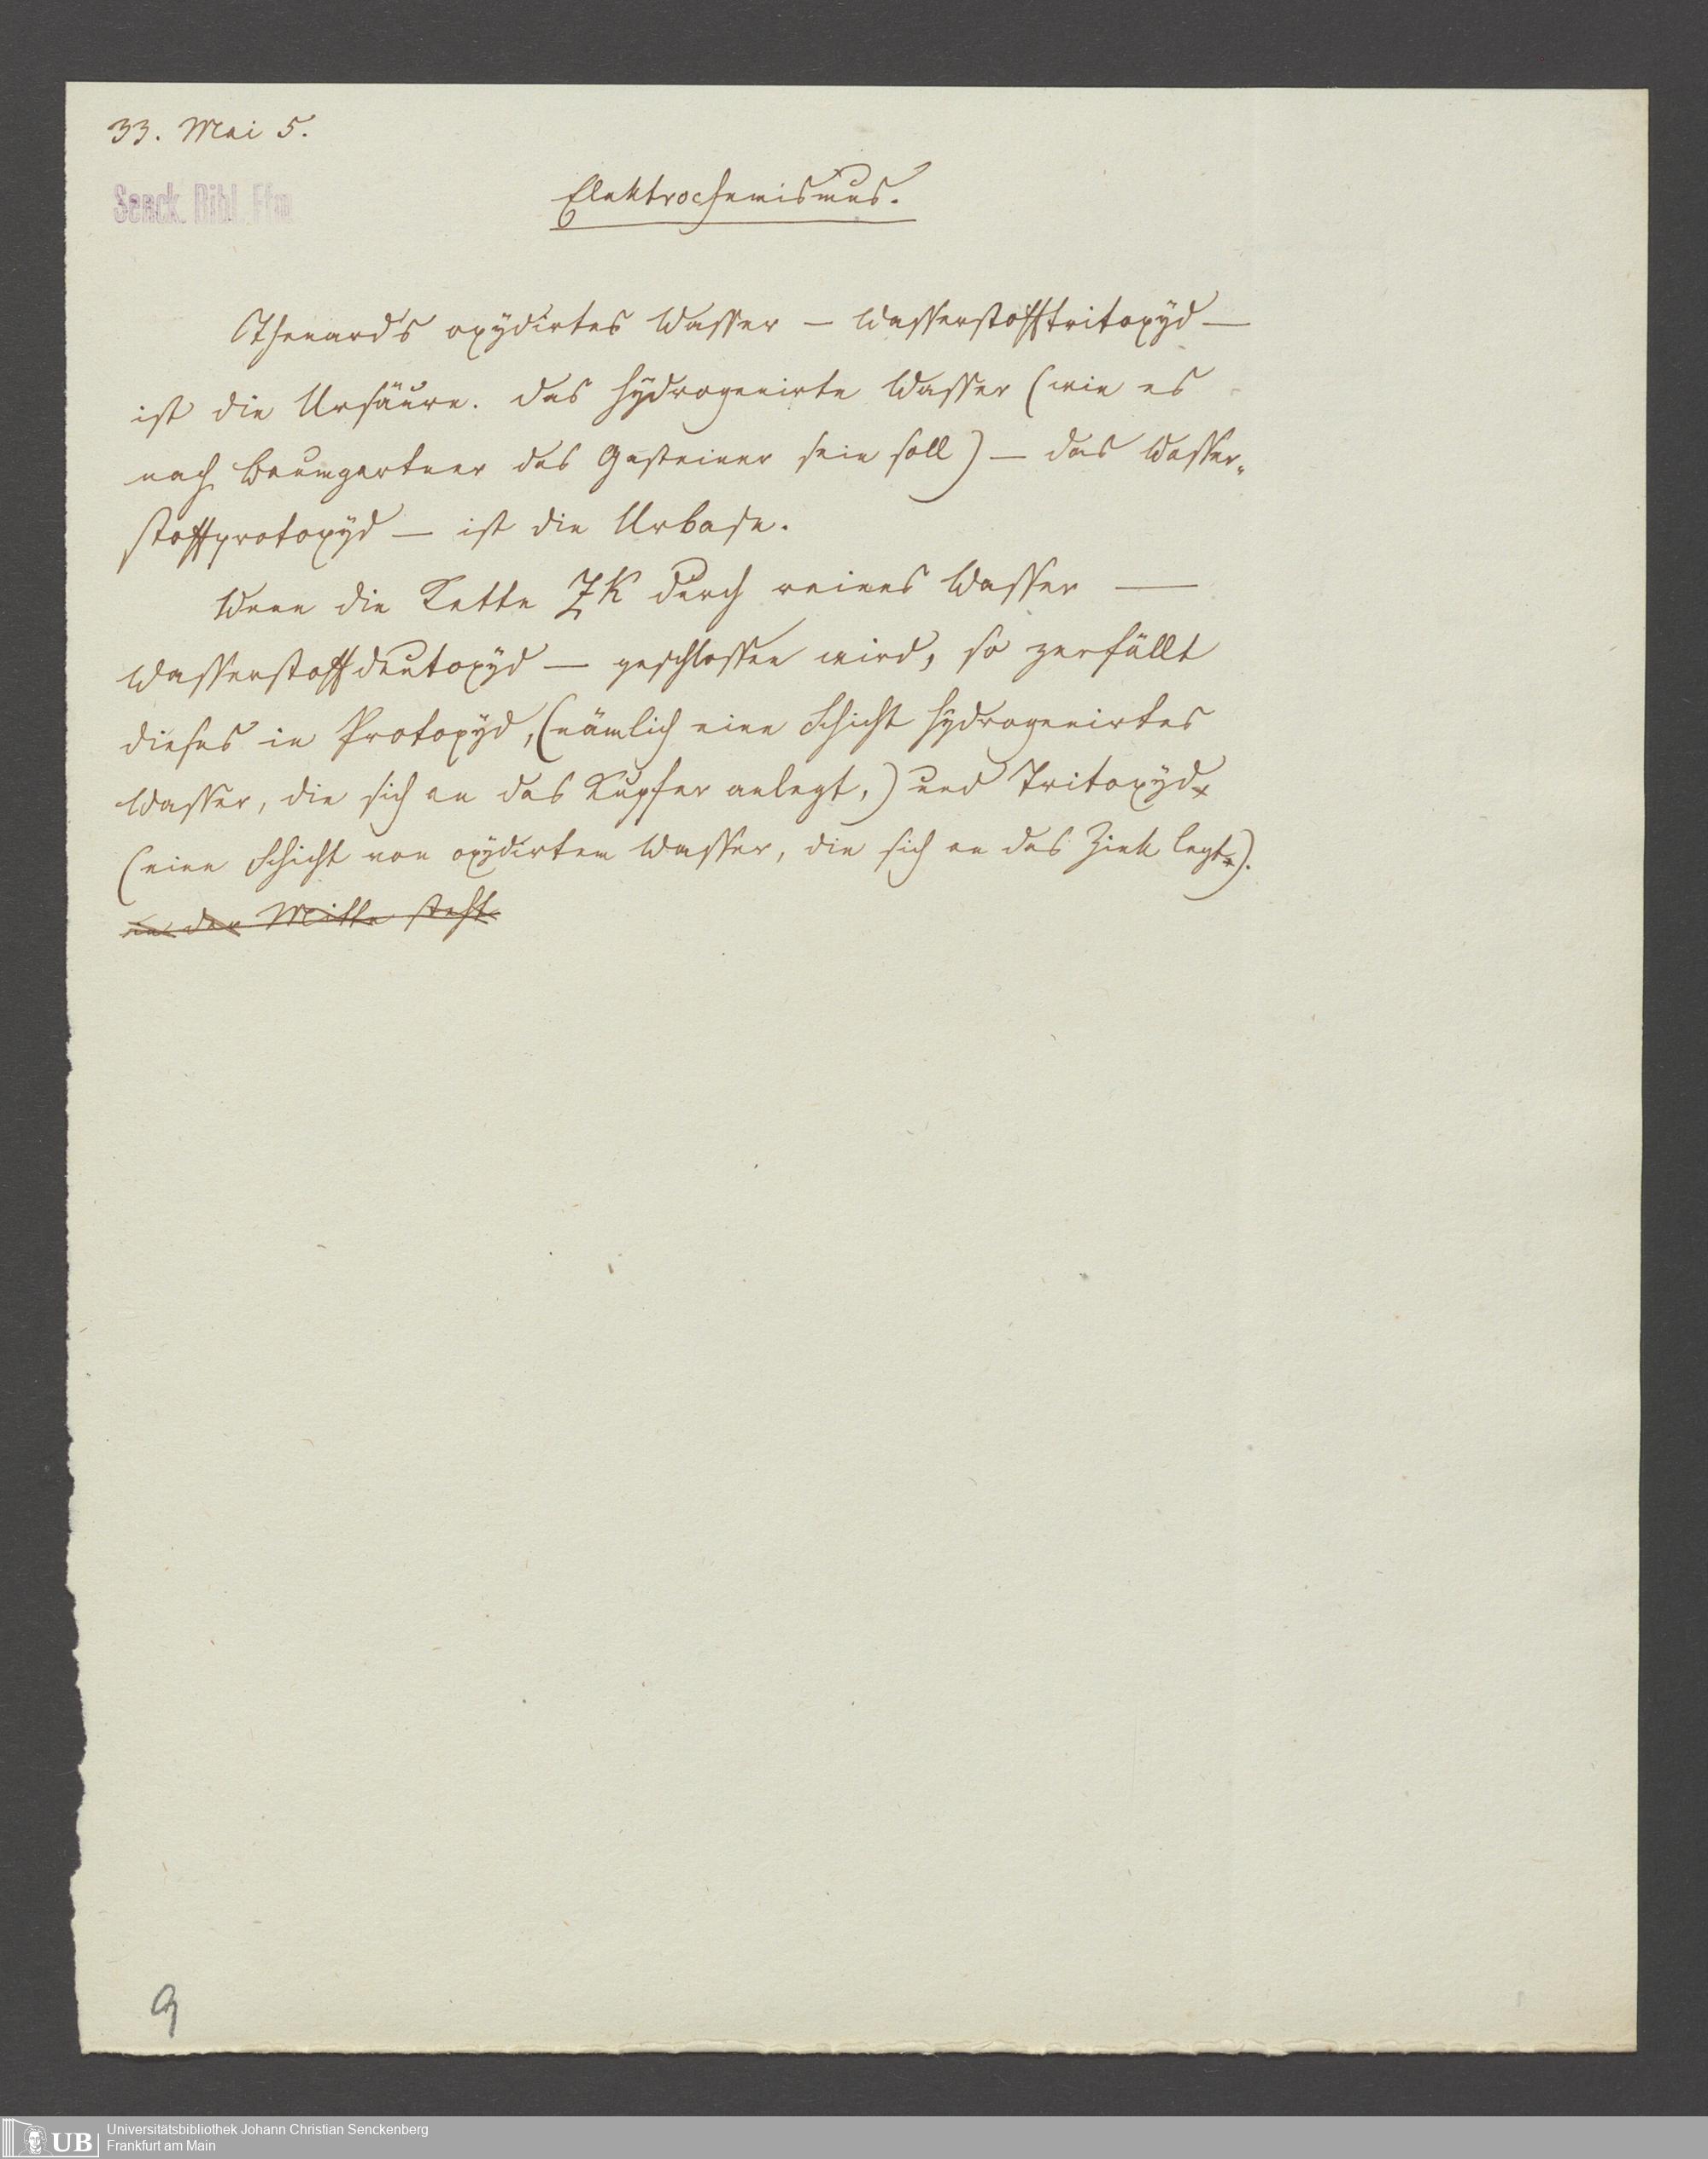 33. Mai 5.
Senck. Bibl. Ffm
Elektrochemismus.
Thenard's oxydirtes Wasser — Wasserstofftritoxÿd —
ist die Ursäure. Das hÿdrogenirte Wasser (wie es
nach Baumgartner das Gasteiner sein soll) — das Wasser-
stoffprotoxÿd — ist die Urbase.
Wenn die Kette ZK durch reines Wasser —
Wasserstoffdeutoxÿd — geschlossen wird, so zerfällt
dieses in Protoxÿd, (nämlich eine Schicht hÿdrogenirtes
Wasser, die sich an das Kupfer anlegt,) und Tritoxÿd
(eine Schicht von oxÿdirtem Wasser, die sich an das Zink legt).
in der Mitte steht
9
UB
Universitätsbibliothek Johann Christian Senckenberg
Frankfurt am Main